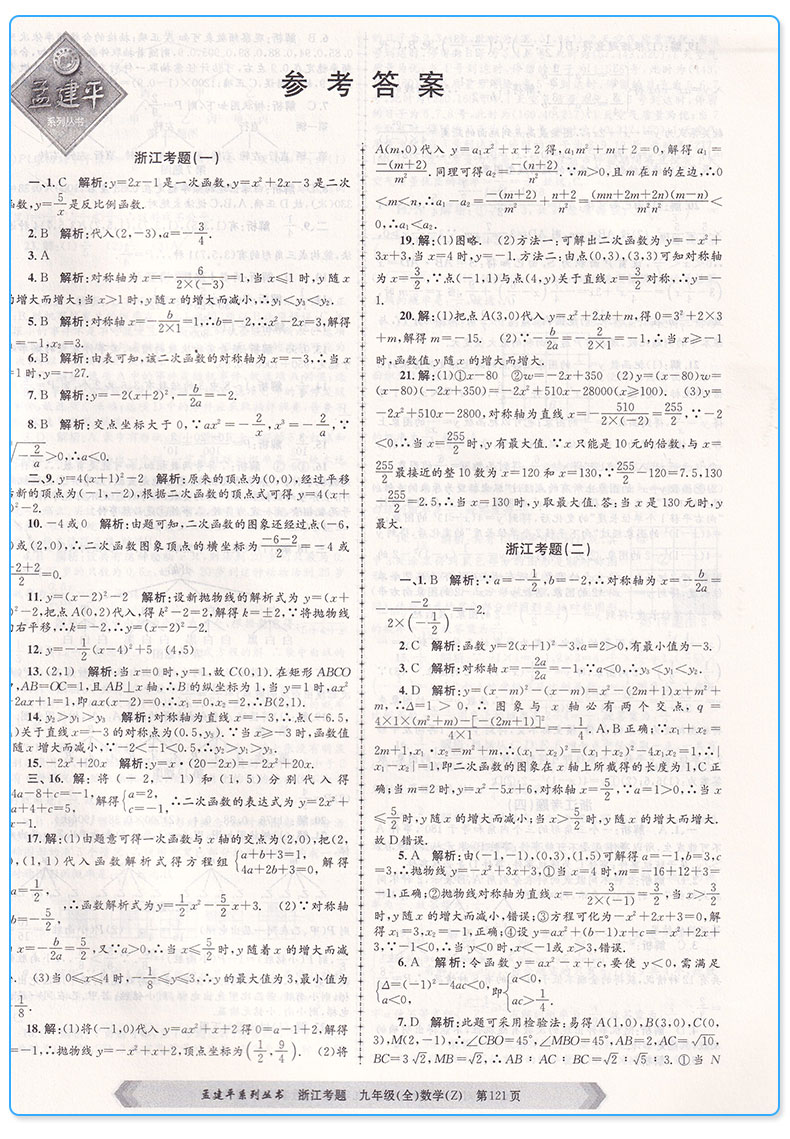 孟建平
系列丛书
参考答案
浙江考题(一)
一、1. C 解析:y=2x-1是一次函数,y=x²+2x-3是二次
函数,y=5/x是反比例函数.
2. B 解析:代入(2,-3),a=-3/4.
3. A
4. B 解析:对称轴为x=-6/(2×(-3))=1,当x≤1时,y随x
的增大而增大;当x>1时,y随x的增大而减小,∴y₁<y₃<y₂.
5. B 解析:对称轴x=-b/(2×1)=1,∴b=-2,∴x²-2x=3,解得
=-1,x₂=3.
6. B 解析:由表可知,该二次函数的对称轴为x=-3,∴当x
=1时,y=-27.
7. B 解析:y=-2(x+2)²,-b/2a=-2.
8. B 解析:交点坐标大于0,∵ax²=-2/x,x³=-2/a,∵
√(-2/a)>0,∴a<0.
二、9. y=4(x+1)²-2 解析:原来的顶点为(0,0),经过平移
后新的顶点为(-1,-2),根据二次函数的顶点式可得y=4(x+
)²-2.
10. -4或0 解析:由题可知,二次函数的图象还经过点(-6,
)或(2,0),∴二次函数图象顶点的横坐标为(-6-2)/2=-4或
(-2+2)/2=0.
11. y=(x-2)²-2 解析:设新抛物线的解析式为y=(x+
)²-2,把点A(0,2)代入,得k²-2=2,解得k=±2.∵将抛物线
向右平移,∴k=-2,∴y=(x-2)²-2.
12. y=-1/2(x-4)²+5 (4,5)
13. (2,1) 解析:当x=0时,y=1,故C(0,1).在矩形ABCO
,AB=OC=1,且AB⊥x轴,∴B的纵坐标为1,当y=1时,ax²
-2ax+1=1,即ax(x-2)=0,∴x₁=0,x₂=2,∴B(2,1).
14. y₂>y₁>y₃ 解析:对称轴为直线x=-3,∴点(-6.5,
)关于直线x=-3的对称点为(0.5,y₃).∵当x≥-3时,函数值
随x增大而减小,∵-2<-1<0.5,∴y₂>y₁>y₃.
15. -2x²+20x 解析:y=x·(20-2x)=-2x²+20x.
三、16. 解:将(-2,-1)和(1,5)分别代入得
{4a-8+c=-1, a+4+c=5, 解得{a=2, c=-1, ∴二次函数的表达式为y=2x²+
x-1.
17. 解:(1)由题意可得一次函数与x轴的交点为(2,0),把(2,
),(1,1)代入函数解析式得方程组{a+b+3=1, 4a+2b+3=0, 解得
a=1/2, b=-5/2, ∴函数解析式为y=1/2x²-5/2x+3. (2)∵对称轴
x=-b/2a=5/2,又∵a>0,∴当x≤5/2时,y随着x的增大而减
. (3)当0≤x≤4时,-1/8≤y≤3,∴y的最大值为3,最小值为
1/8.
18. 解:(1)将(-1,0)代入y=ax²+x+2得0=a-1+2,解得
=-1,∴抛物线y=-x²+x+2,顶点坐标为(1/2,9/4). (2)将
A(m,0)代入y=a₁x²+x+2得,a₁m²+m+2=0,解得a₁=
-(m+2)/m².同理可得a₂=-(n+2)/n².∵m>0,且m在n的左边,∴0
<m<n,∴a₁-a₂=-(m+2)/m²+(n+2)/n²=(mn+2m+2n)(m-n)/m²n²<
0,∴a₁<a₂.
19. 解:(1)图略. (2)方法一:可解出二次函数为y=-x²+
3x+3,当x=4时,y=-1.方法二:由点(0,3),(3,3)可知对称轴
为x=3/2,∵点(-1,1)与点(4,y)关于直线x=3/2对称,∴y=-
1.
20. 解:(1)把点A(3,0)代入y=x²+2xk+m,得0=3²+2×3
+m,解得m=-15. (2)∵-b/2a=-2/(2×1)=-1,∴当x>-1
时,函数值y随x的增大而增大.
21. 解:(1)①x-80 ②w=-2x+350 (2)y=(x-80)w=
(x-80)(-2x+350)=-2x²+510x-28000(x≥100). (3)y=
-2x²+510x-2800,对称轴为直线x=-510/(2×(-2))=255/2,∵-2
<0,∴当x=255/2时,y有最大值.∵x只能是10元的倍数,与x=
255/2最接近的整10数为x=120和x=130,∵255/2-120=7.5,130
-255/2=2.5,∴当x=130时,y取最大值.答:当x是130元时,y
最大.
浙江考题(二)
一、1. B 解析:∵a=-1/2,b=-2,∴对称轴为x=-b/2a=
-(-2)/(2×(-1/2))=-2.
2. C 解析:函数y=2(x+1)²-3,a=2>0,有最小值为-3.
3. C 解析:对称轴x=-2a/2a=-1,∵a<0,∴y₃<y₁<y₂.
4. D 解析:y=(x-m)²-(x-m)=x²-(2m+1)x+m²+
m,∴Δ=1>0,∴图象与x轴必有两个交点,q=
(4×1×(m²+m)-[-(2m+1)]²)/(4×1)=-1/4.A,B正确;∵x₁+x₂=
2m+1,x₁·x₂=m²+m,∴(x₁-x₂)²=(x₁+x₂)²-4x₁x₂=1,∴|
x₁-x₂|=1,即二次函数的图象在x轴上所截得的长度为1,C正
确;当m=2时,y=x²-5x+6,对称轴x=5/2,∵a=1>0,∴当x
≤5/2时,y随x的增大而减小;当x>5/2时,y随x的增大而增大.
故D错误.
5. A 解析:由(-1,-1),(0,3),(1,5)可解得a=-1,b=3,c
=3,∴抛物线y=-x²+3x+3,①当x=4时,m=-16+12+3=
-1,正确;②抛物线对称轴为直线x=-3/(2×(-1))=3/2,当x>3/2
时,y随x的增大而减小,错误;③方程可化为-x²+2x+3=0,解
得x₁=3,x₂=-1,正确;④设y=ax²+(b-1)x+c=-x²+2x+
3,∵-1<0,∴当y<0时,x<-1或x>3,错误.
6. A 解析:令函数y=ax²-x+c,要使y<0,需满足
{Δ=(-1)²-4ac<0, a<0, 即{a<0, ac>1/4.
7. D 解析:此题可采用检验法:易得A(1,0),B(3,0),C(0,
3),M(2,-1),∴∠CBO=45°,∠MBO=45°,AB=2,AC=√10,
BC=3√2,MB=√2,∴AB∶AC∶BC=√2∶√5∶3.①当N
孟建平系列丛书 浙江考题 九年级(全)数学(Z) 第121页